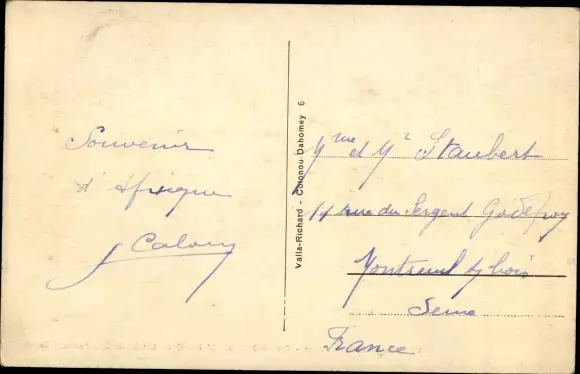 Souvenir
d'Afrique
Valla-Richard - Cotonou-Dahomey 6
Mme et Mr Staubert
rue du Sergent Godefroy
Montreuil s/ bois
Seine
France